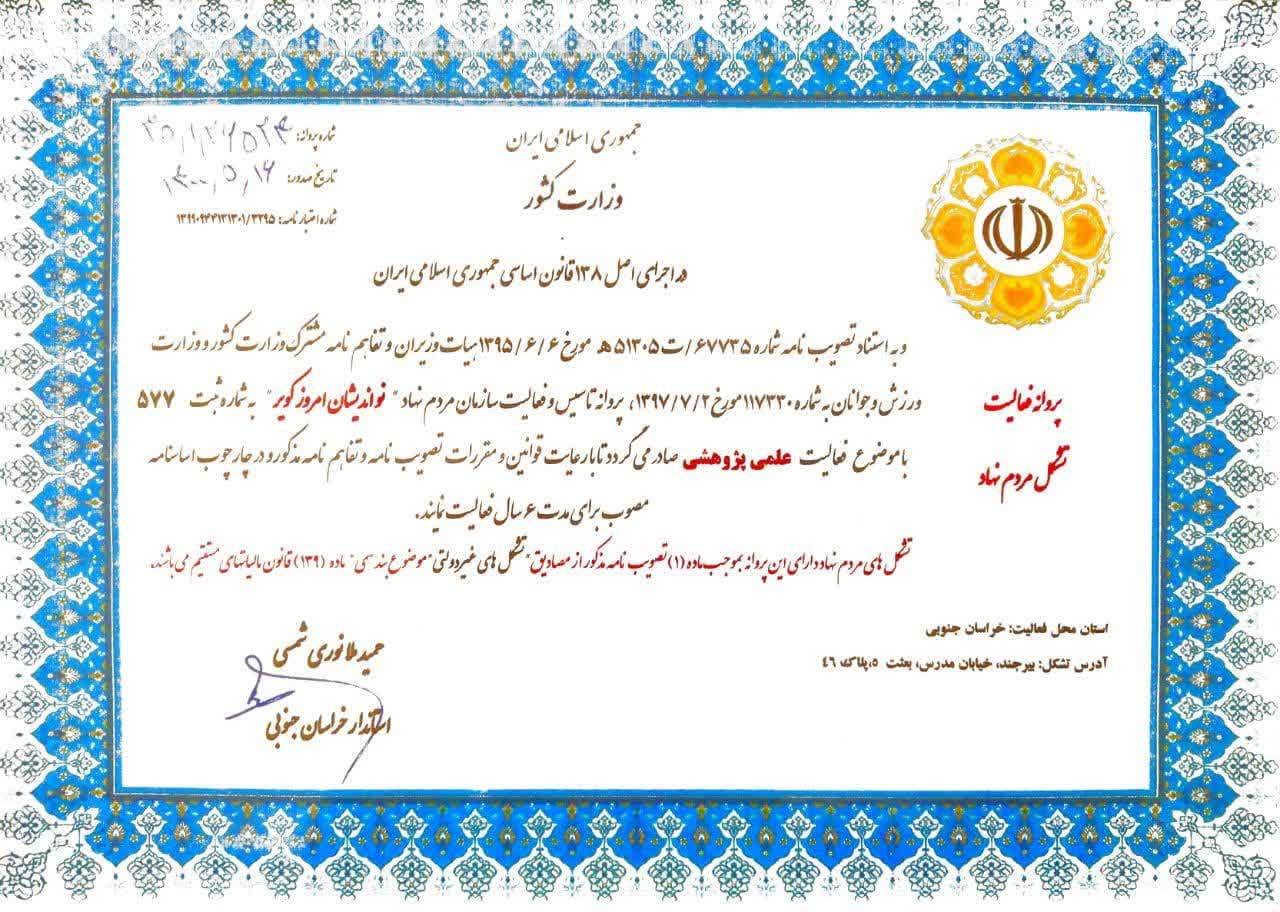 جمهوری اسلامی ایران
وزارت کشور
شماره پروانه: ۳۵۱۲۶۵۲۴
تاریخ صدور: ۱۴۰۰,۵,۱۶
شماره اعتبار نامه: ۱۳۹۹۰۹۴۴۱۳۱۳۰۱/۳۲۹۵
در اجرای اصل ۱۳۸ قانون اساسی جمهوری اسلامی ایران
پروانه فعالیت
تشکل مردم نهاد
و به استناد تصویب نامه شماره ۶۷۷۳۵/ت۵۱۳۰۵هـ مورخ ۱۳۹۵/۶/۶ هیات وزیران و تفاهم نامه مشترک وزارت کشور و وزارت
ورزش و جوانان به شماره ۱۱۷۳۳۰ مورخ ۱۳۹۷/۷/۲، پروانه تاسیس و فعالیت سازمان مردم نهاد " نواندیشان امروز کویر " به شماره ثبت ۵۷۷
با موضوع فعالیت علمی پژوهشی صادر می گردد تا با رعایت قوانین و مقررات تصویب نامه و تفاهم نامه مذکور و در چارچوب اساسنامه
مصوب برای مدت ۶ سال فعالیت نمایند.
تشکل های مردم نهاد دارای این پروانه بموجب ماده (۱) تصویب نامه مذکور از مصادیق "تشکل های غیردولتی" موضوع بند سی" ماده (۱۳۹) قانون مالیاتهای مستقیم می باشند.
استان محل فعالیت: خراسان جنوبی
آدرس تشکل: بیرجند، خیابان مدرس، بعثت ۵،پلاک ٤٦
حمید ملانوری شمسی
استاندار خراسان جنوبی